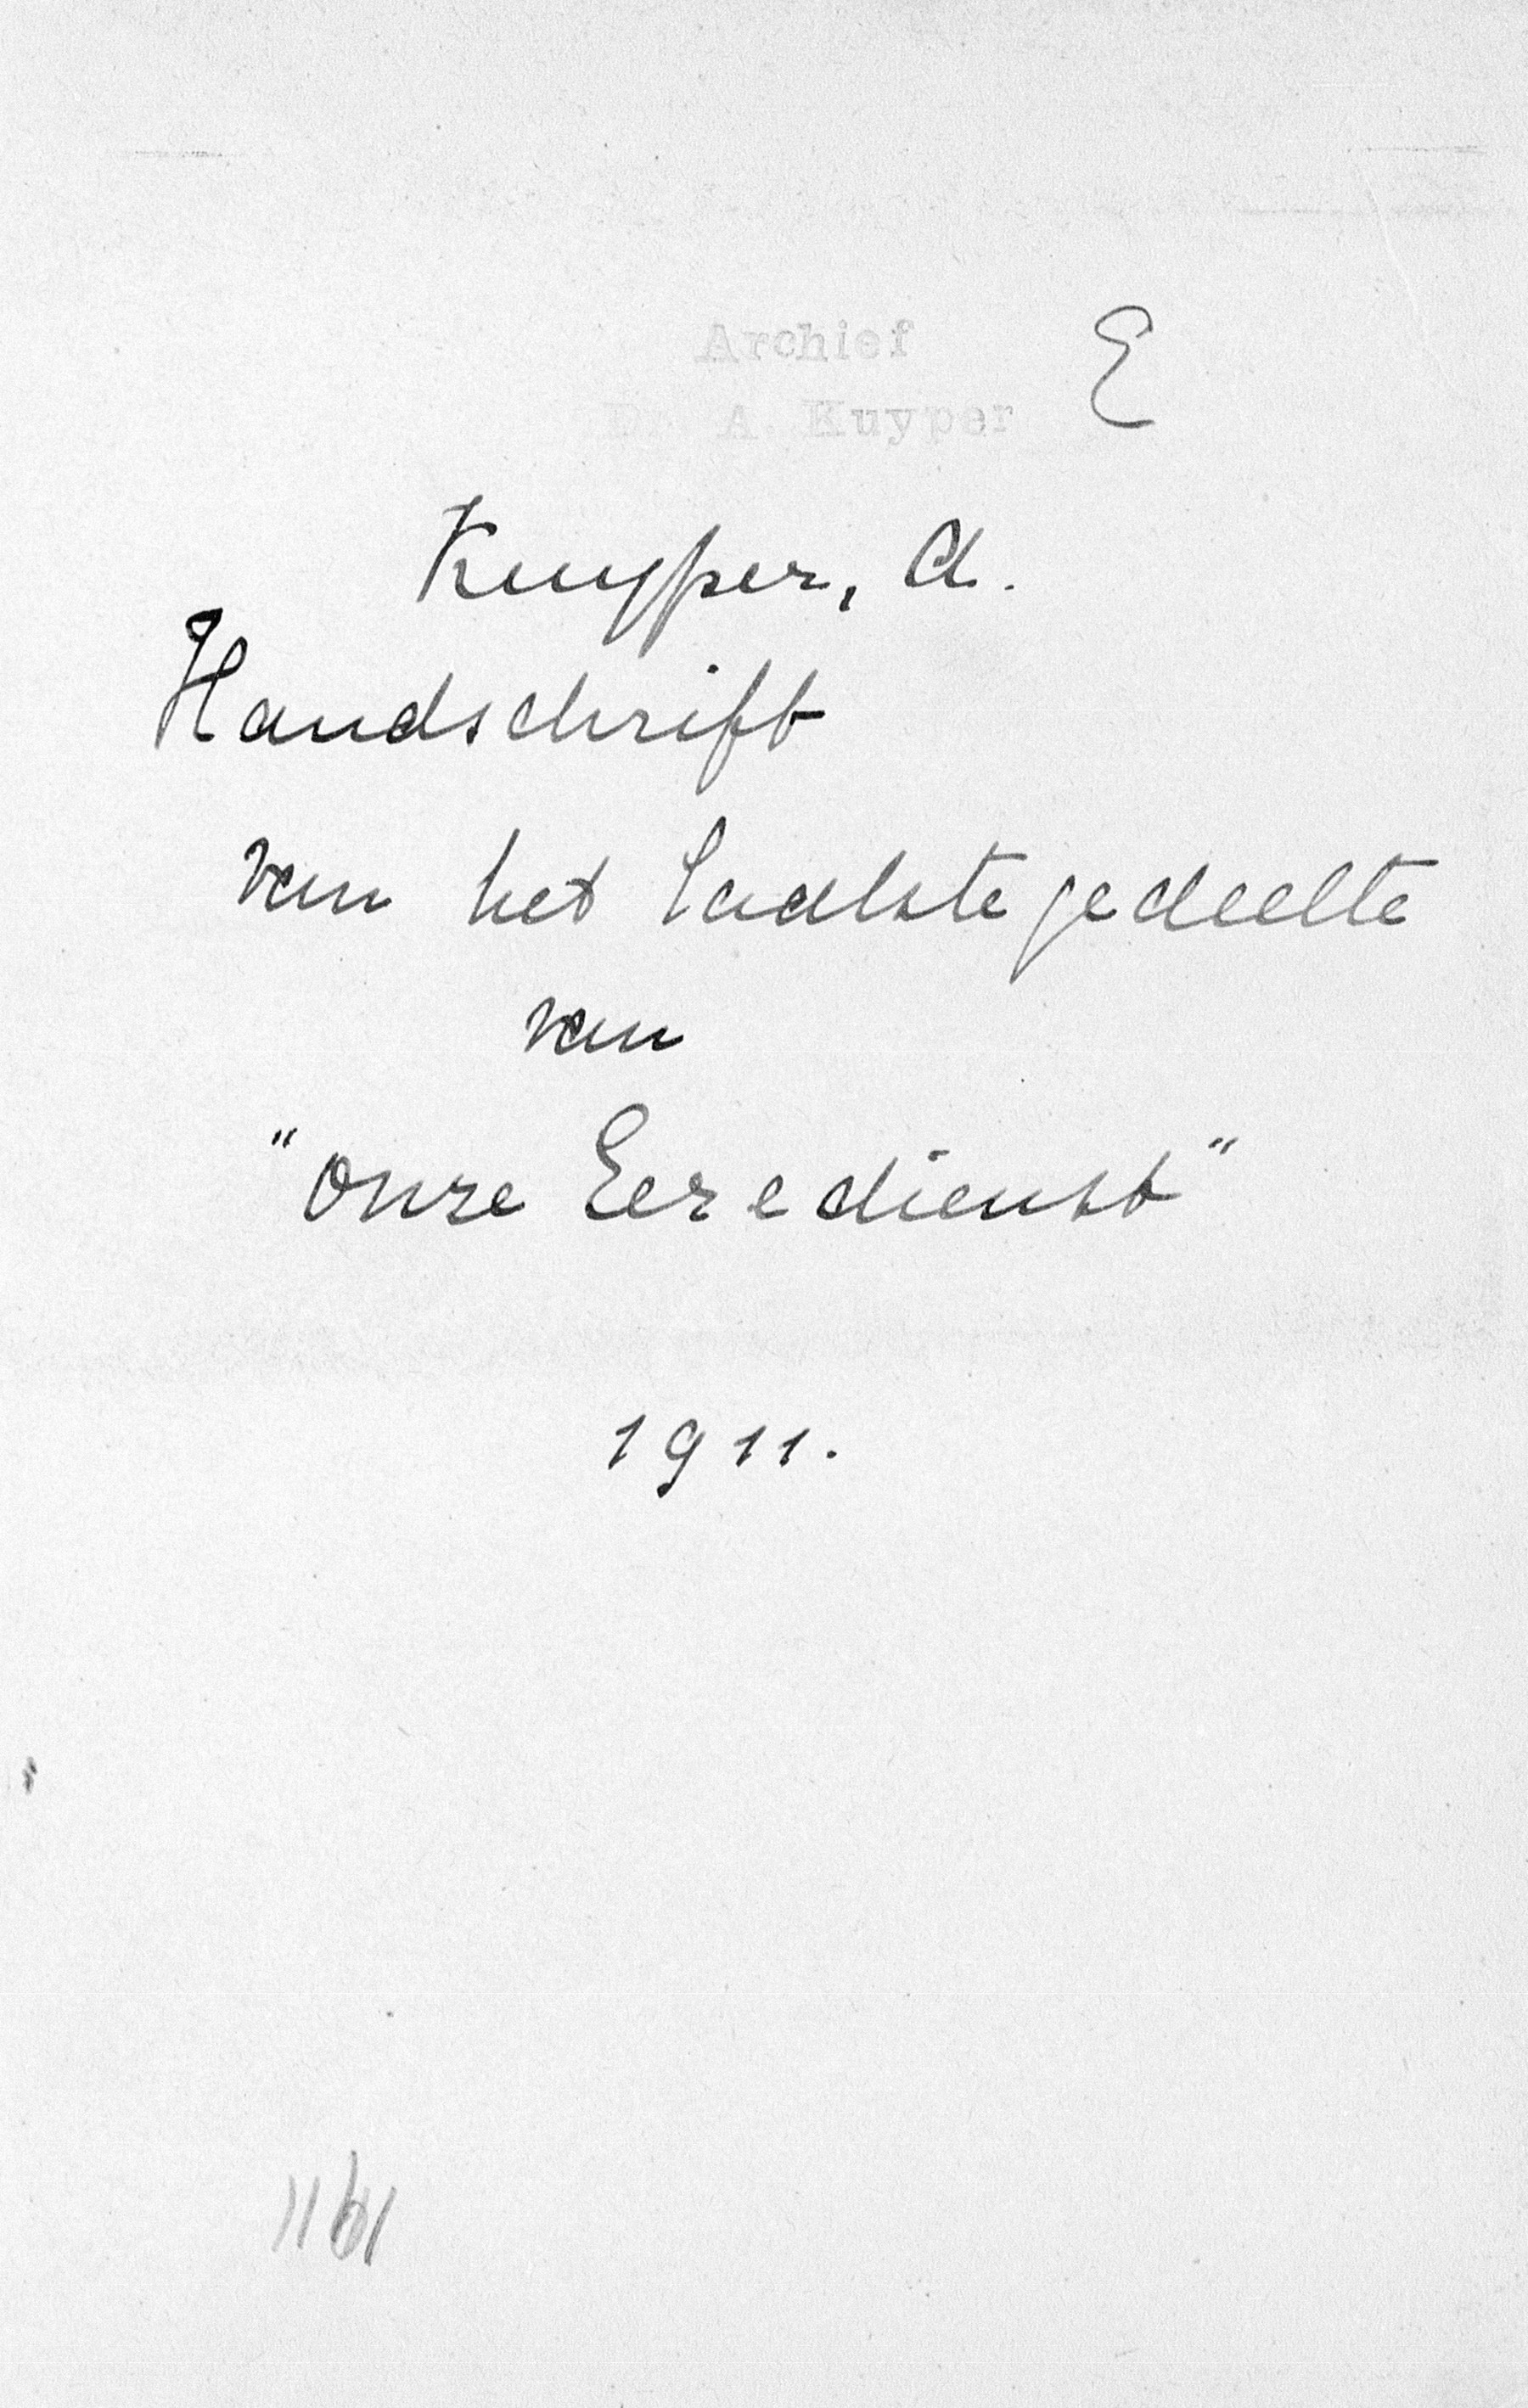 Archief
E
Dr. A. Kuyper
Kuyper, A.
Handschrift
van het laatste gedeelte
van
"Onze Eeredienst"
1911.